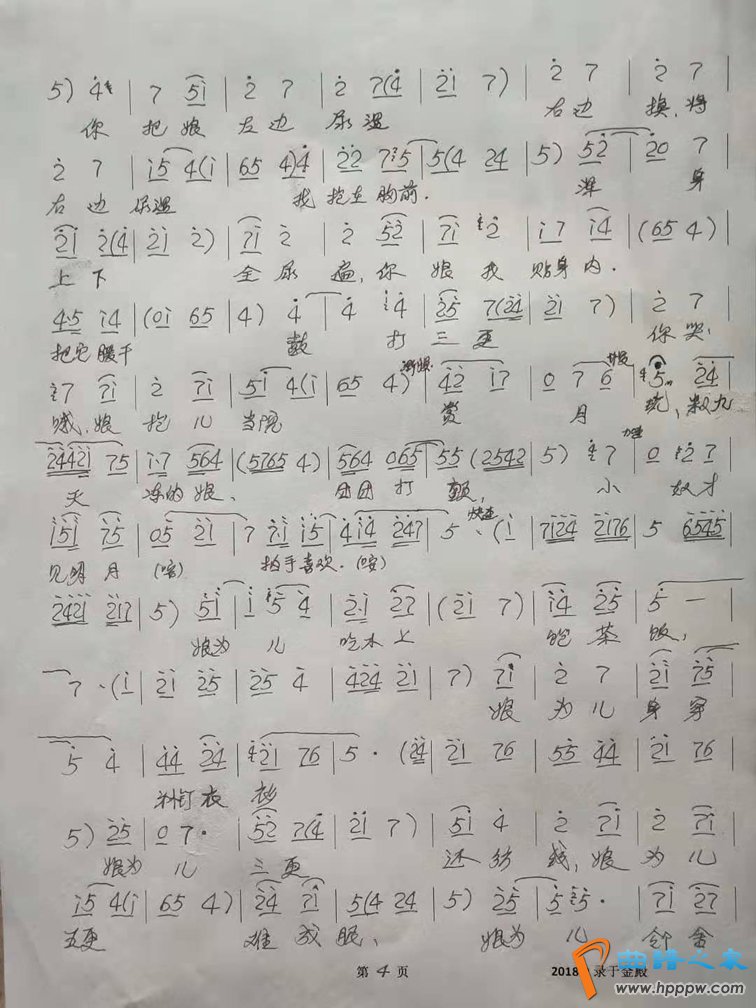 5) 4 | 7 5i | 2 7 | 2 7(4 | 2i 7) | 2 7 | 2 7 |
你 把 娘 左 边 尿 湿 右 边 换, 将
2 7 | i5 4(i | 65 4)4 | 22 7i5 | 5(4 24 | 5) 52 | 20 7 |
右 边 尿 湿 我 抱 在 胸 前. 浑 身
2i 2(4 | 2i 2) | 7i 2 | 2 52 | 7i 2 | i7 i4 | (65 4) |
上 下 全 尿 遍, 你 娘 我 贴 身 内.
45 i4 | (0i 65 | 4) 4 | 4 4 | 25 7(24 | 2i 7) | 2 7 |
把 儿 暖 干 鼓 打 三 更 你 哭,
7 7i | 2 7i | 5i 4(i | 65 4) | 42 i7 | 0 7 6 | 5 24 |
娘 抱 儿 当 院 赏 月 玩, 数 九
2442i 75 | i·7 564 | (5765 4) | 564 065 | 55 (2542 | 5) 7 | 0 2 7 |
天 冻 的 娘、 团 团 打 颤, 小 奴 才
i5i 75 | 05 2i | 7 7i i5 | 4i4 247 | 5 · (i | 7i24 2i76 | 5 6545 |
见 明 月 (咹) 拍 手 喜 欢. (咹)
242i 2i7 | 5) 5i | i 5 4 | 2·i 27 | (2i 7) | i4 25 | 5 — |
娘 为 儿 吃 不 上 饱 茶 饭,
7 · (i | 2i 25 | 25 4 | 424 2i | 7) 7i | 2 7 | 2i 75 |
娘 为 儿 身 穿
5 4 | 44 24 | 2i 76 | 5 · (24 | 2i 76 | 55 44 | 2i 76 |
补 钉 衣 衫
5) 25 | 0 7· | 52 7(4 | 2i 7) | 5i 4 | 2 7i | 2 7i |
娘 为 儿 三 更 还 纺 线, 娘 为 儿
i5 4(i | 65 4) | 24 7i | 5(4 24 | 5) 25 | 5 5· | 7i 27 |
五 更 难 成 眠、 娘 为 儿
第 4 页
2018 录于金殿
曲谱之家
www.hpppw.com